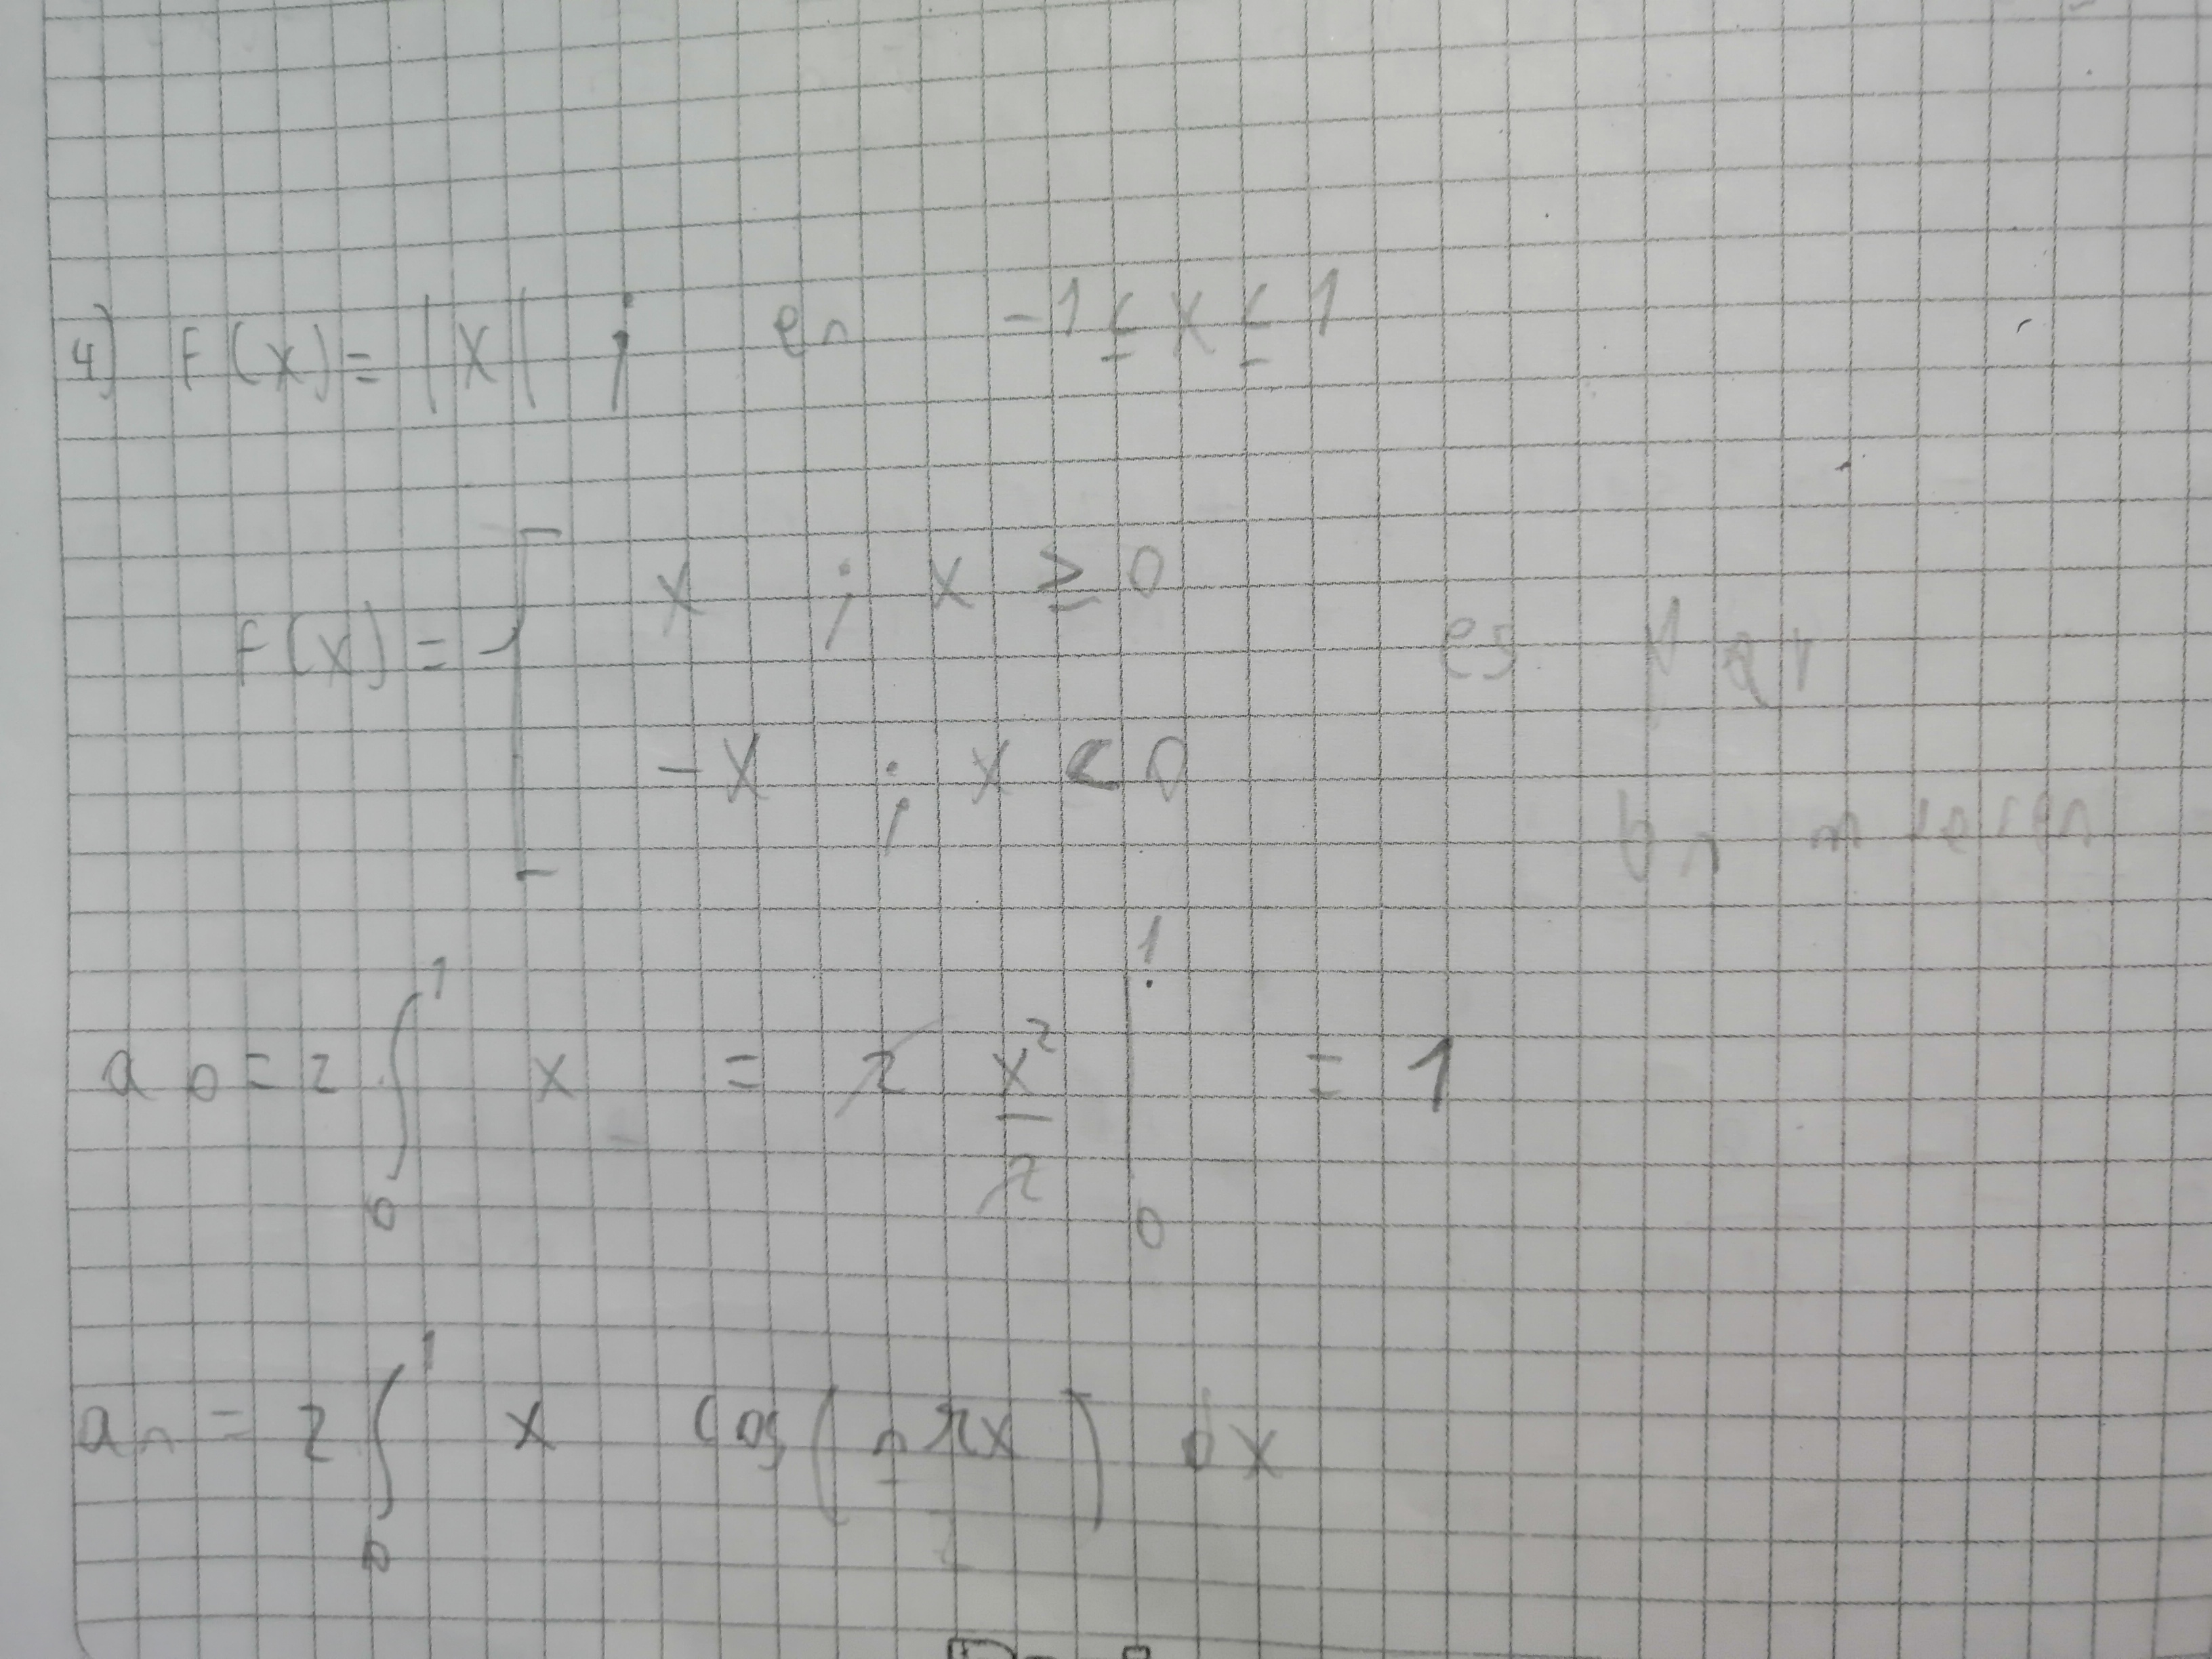 4) F(x) = |x| ; en -1 ≤ x ≤ 1
F(x) = { x ; x ≥ 0
es par
-x ; x < 0
bn
a0 = 2 ∫₀¹ x = 2 x²/2 |₀¹ = 1
an = 2 ∫₀¹ x cos(nπx) dx